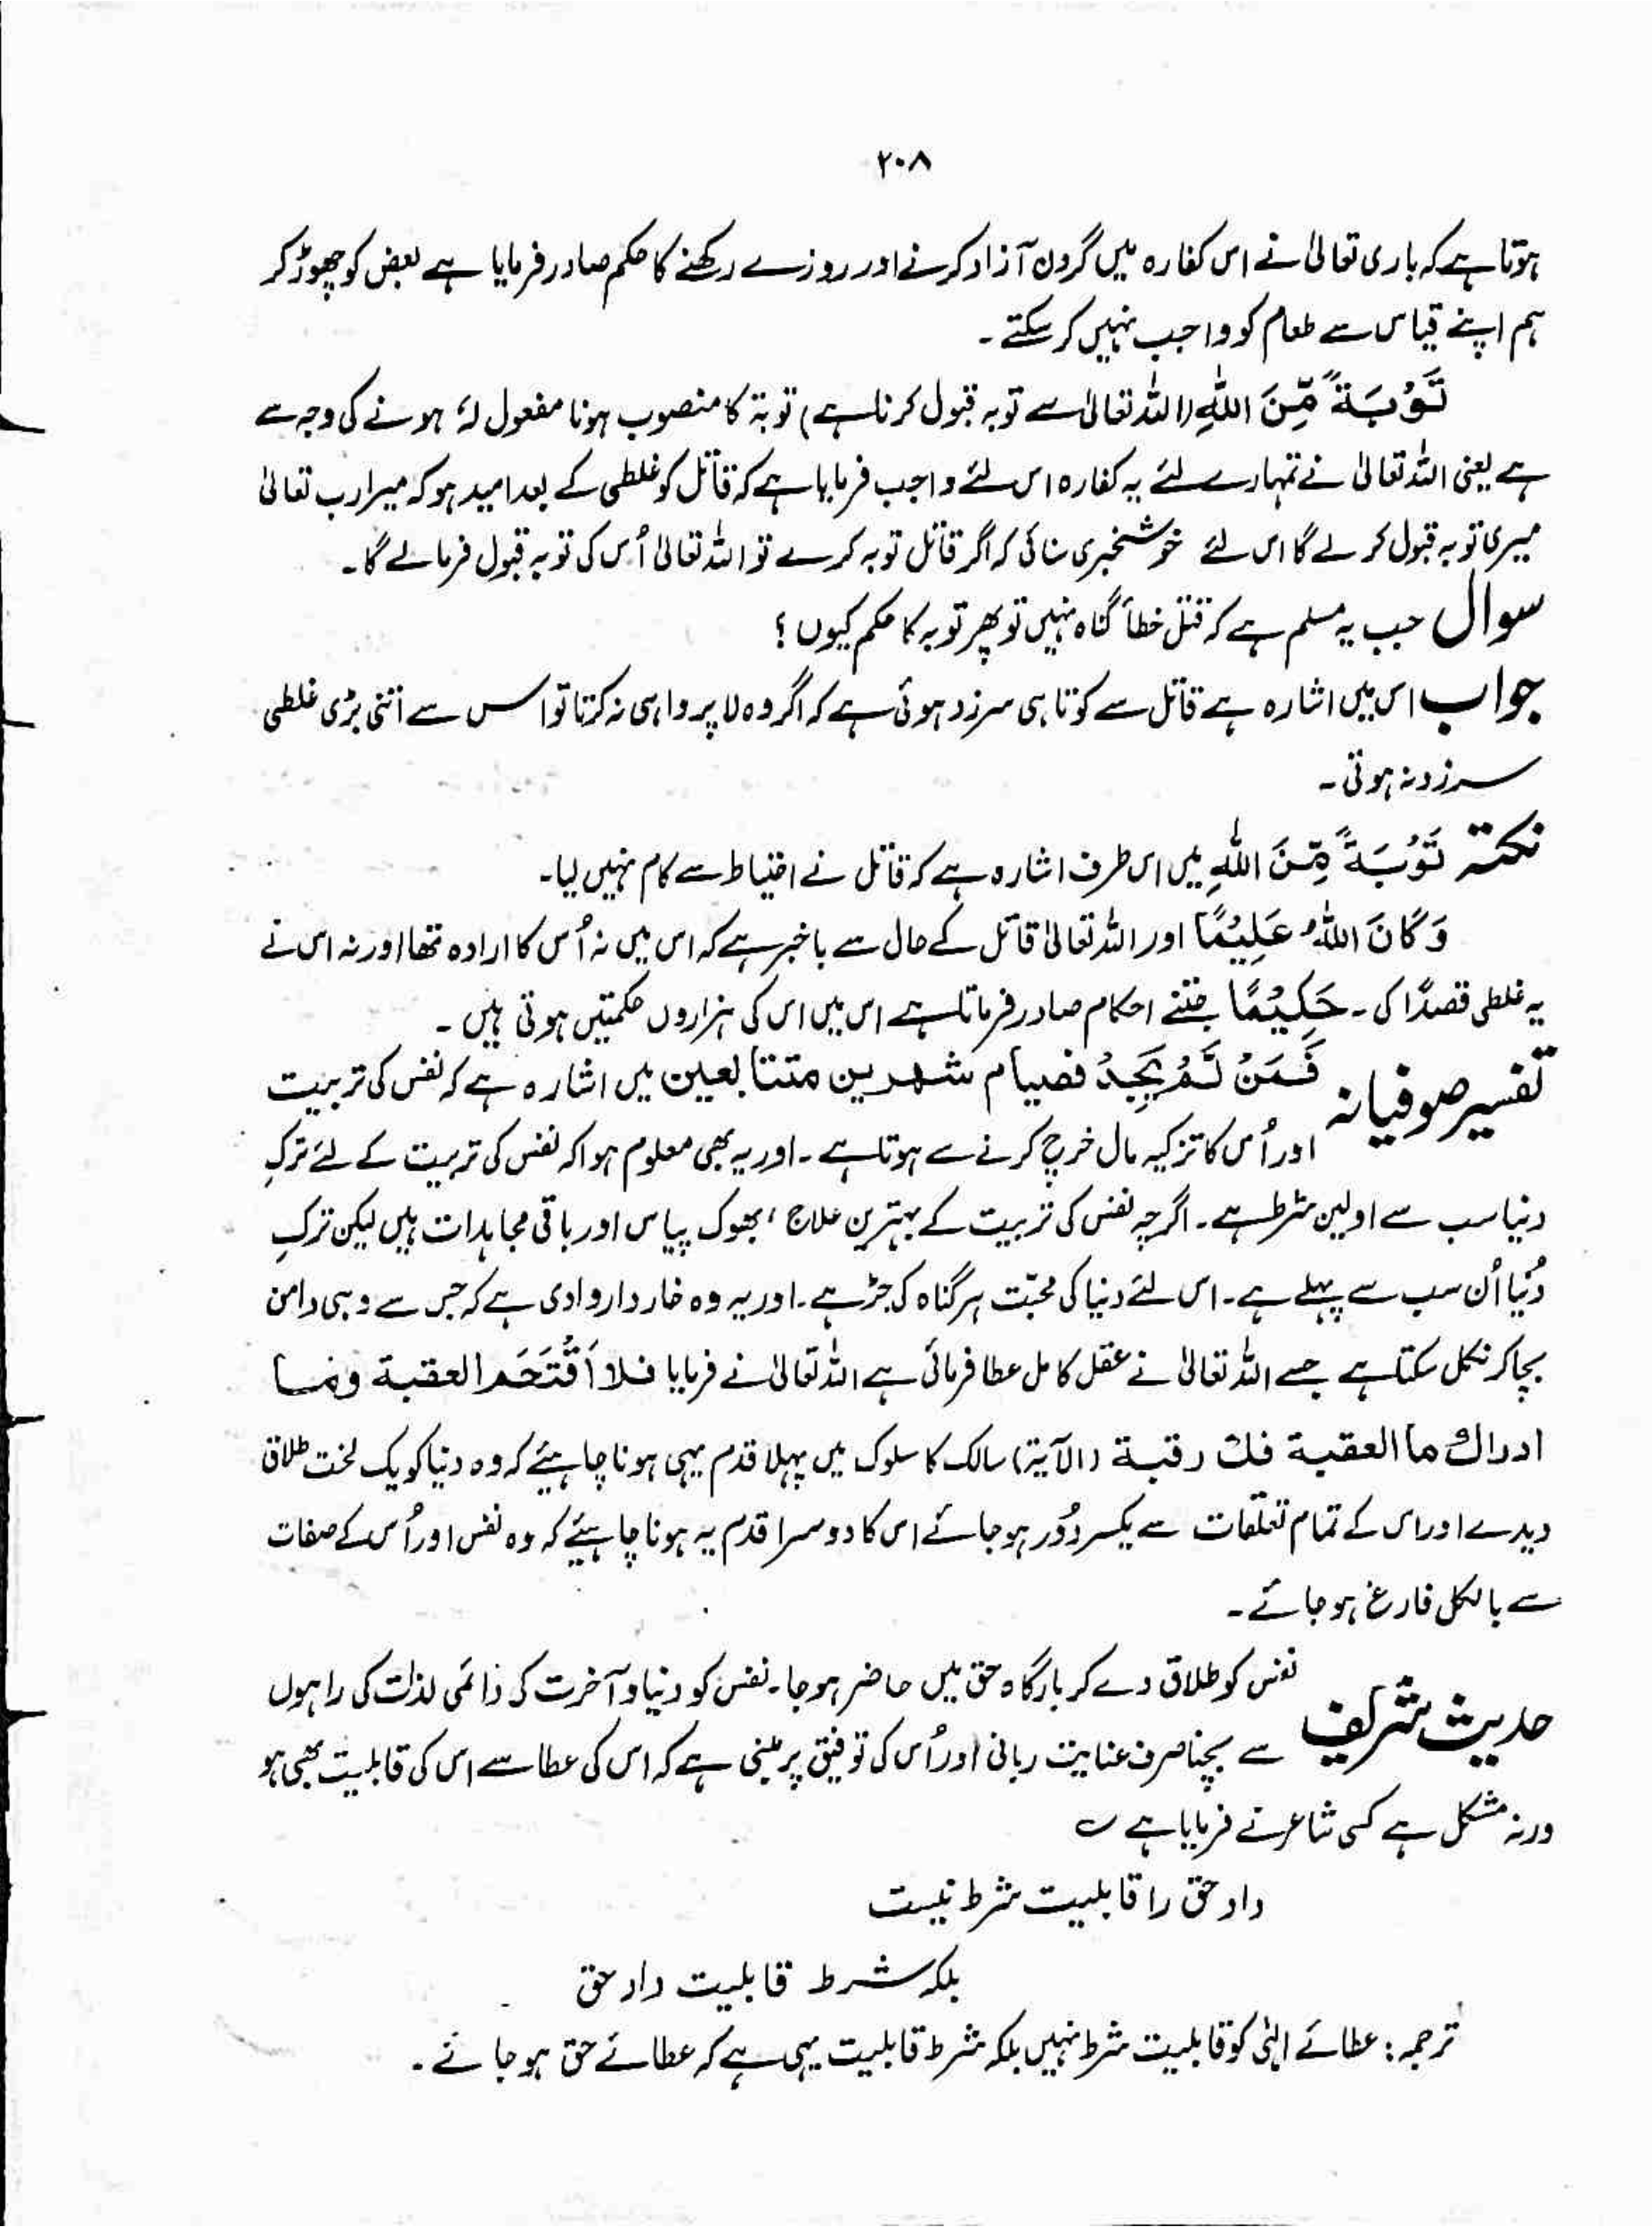 ۲۰۸
ہوتا ہے کہ باری تعالیٰ نے اس کفارہ میں گردن آزاد کرنے اور روزے رکھنے کا حکم صادر فرمایا ہے بعض کو چھوڑ کر
ہم اپنے قیاس سے طعام کو واجب نہیں کر سکتے ۔
تَوْبَةً مِّنَ اللّٰهِ (اللہ تعالیٰ سے توبہ قبول کرنا ہے) توبۃ کا منصوب ہونا مفعول لہٗ ہونے کی وجہ سے
ہے یعنی اللہ تعالیٰ نے تمہارے لئے یہ کفارہ اس لئے واجب فرمایا ہے کہ قاتل کو غلطی کے بعد امید ہو کہ میرا رب تعالیٰ
میری توبہ قبول کر لے گا اس لئے خوشخبری سنائی کہ اگر قاتل توبہ کرے تو اللہ تعالیٰ اُس کی توبہ قبول فرمالے گا ۔
سوال جب یہ مسلم ہے کہ قتل خطأ گناہ نہیں تو پھر توبہ کا حکم کیوں ؟
جواب اس میں اشارہ ہے قاتل سے کوتاہی سرزد ہوئی ہے کہ اگر وہ لاپرواہی نہ کرتا تو اس سے اتنی بڑی غلطی
سرزد نہ ہوتی ۔
نکتہ تَوْبَةً مِّنَ اللّٰهِ میں اس طرف اشارہ ہے کہ قاتل نے احتیاط سے کام نہیں لیا ۔
وَ كَانَ اللّٰهُ عَلِيْمًا اور اللہ تعالیٰ قاتل کے حال سے باخبر ہے کہ اس میں نہ اُس کا ارادہ تھا اور نہ اس نے
یہ غلطی قصدًا کی ۔ حَكِيْمًا جتنے احکام صادر فرماتا ہے اس میں اس کی ہزاروں حکمتیں ہوتی ہیں ۔
تفسیر صوفیانہ فَمَنْ لَّمْ يَجِدْ فصيام شهرين متتابعين میں اشارہ ہے کہ نفس کی تربیت
اور اُس کا تزکیہ مال خرچ کرنے سے ہوتا ہے ۔ اور یہ بھی معلوم ہوا کہ نفس کی تربیت کے لئے ترکِ
دنیا سب سے اولین شرط ہے ۔ اگرچہ نفس کی تربیت کے بہترین علاج ، بھوک پیاس اور باقی مجاہدات ہیں لیکن ترکِ
دُنیا اُن سب سے پہلے ہے ۔ اس لئے دنیا کی محبّت ہر گناہ کی جڑ ہے ۔ اور یہ وہ خاردار وادی ہے کہ جس سے وہی دامن
بچا کر نکل سکتا ہے جسے اللہ تعالیٰ نے عقل کامل عطا فرمائی ہے اللہ تعالیٰ نے فرمایا فلا اَقْتَحَم العقبة وما
ادراك ما العقبة فك رقبة (الآیۃ) سالک کا سلوک میں پہلا قدم یہی ہونا چاہیئے کہ وہ دنیا کو یک لخت طلاق
دیدے اور اس کے تمام تعلّقات سے یکسر دُور ہو جائے اس کا دوسرا قدم یہ ہونا چاہیئے کہ وہ نفس اور اُس کے صفات
سے بالکل فارغ ہو جائے ۔
حدیث شریف نفس کو طلاق دے کر بارگاہ حق میں حاضر ہو جا ۔ نفس کو دنیا و آخرت کی دائمی لذات کی راہوں
سے بچنا صرف عنایت ربانی اور اُس کی توفیق پر مبنی ہے کہ اس کی عطا سے اس کی قابلیت بھی ہو
ورنہ مشکل ہے کسی شاعر نے فرمایا ہے ؎
داد حق را قابلیت شرط نیست
بلکہ شرط قابلیت داد حق
ترجمہ : عطائے الٰہی کو قابلیت شرط نہیں بلکہ شرط قابلیت یہی ہے کہ عطائے حق ہو جائے ۔